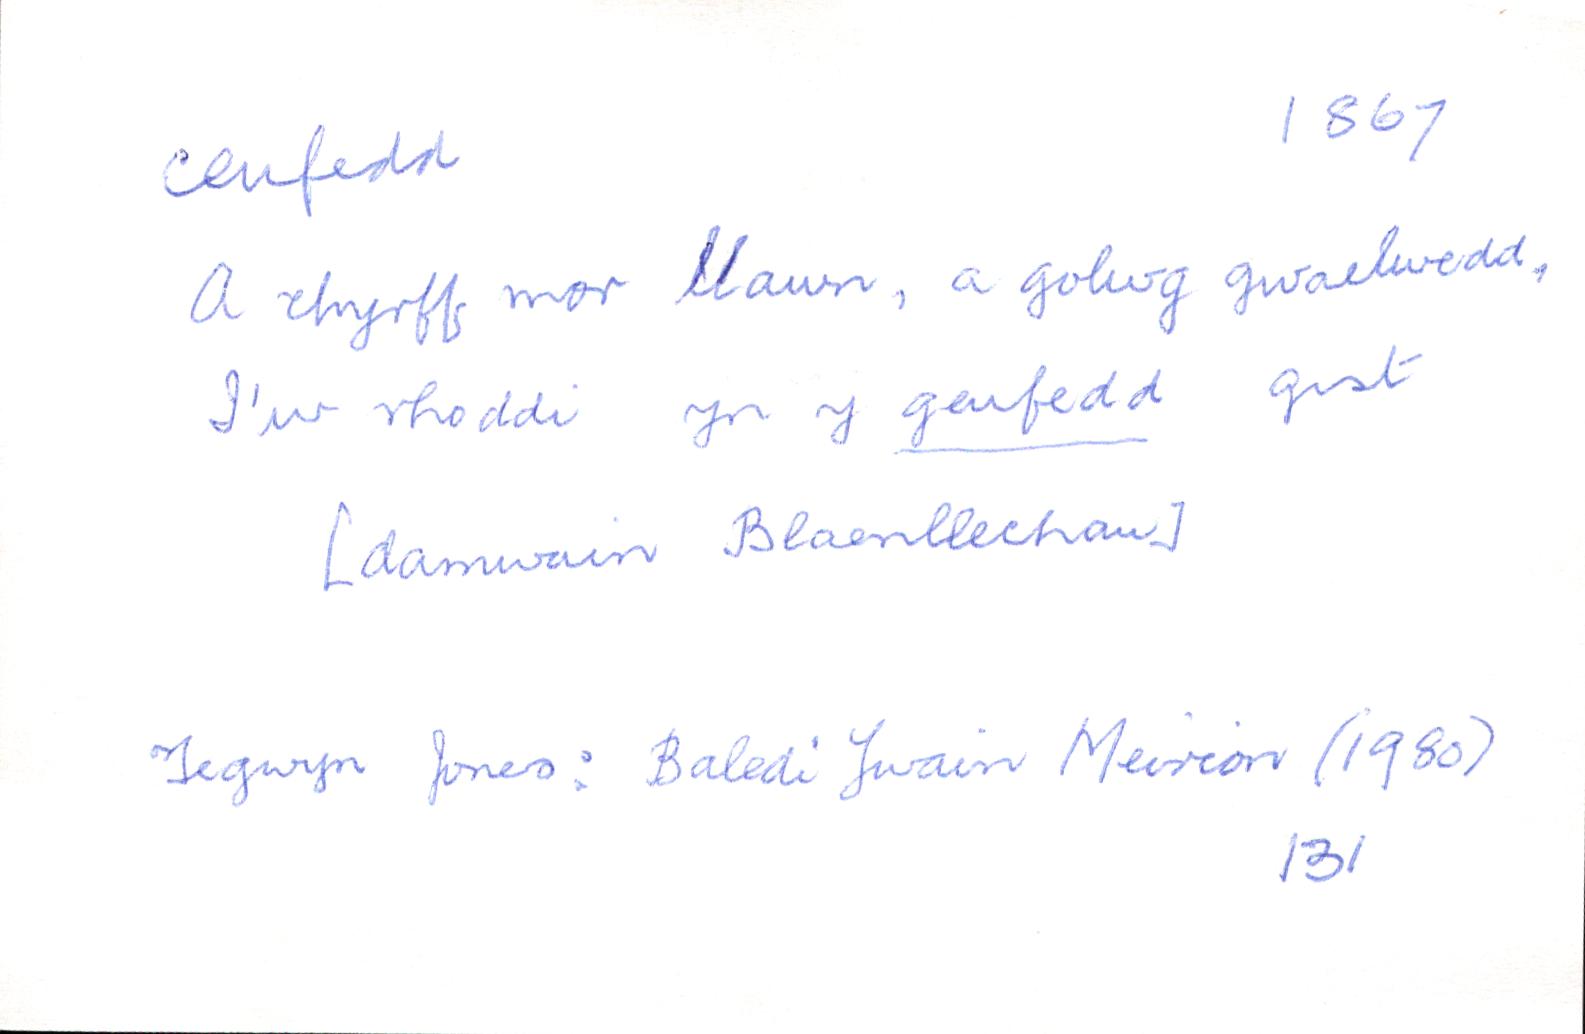 ceufedd 1867
A chyrff mor llawn, a golwg gwaelwedd,
I'w rhoddi yn y geufedd gist
[damwain Blaenllechau]
Tegwyn Jones: Baledi Ywain Meirion (1980)
131